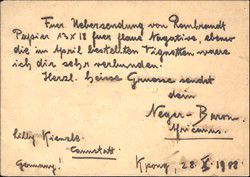 Fuer Uebersendung von Rembrandt
Papier 13 x 18 fuer flaue Negative, ebenso
die im April bestellten Vignetten waere
ich dir sehr verbunden!
Herzl. heisse Gruesse sendet
dein
Neger-Baron
Africanus.
Willy Kienzle
Cannstatt
Germany!
Kpong, 28. X. 1908.